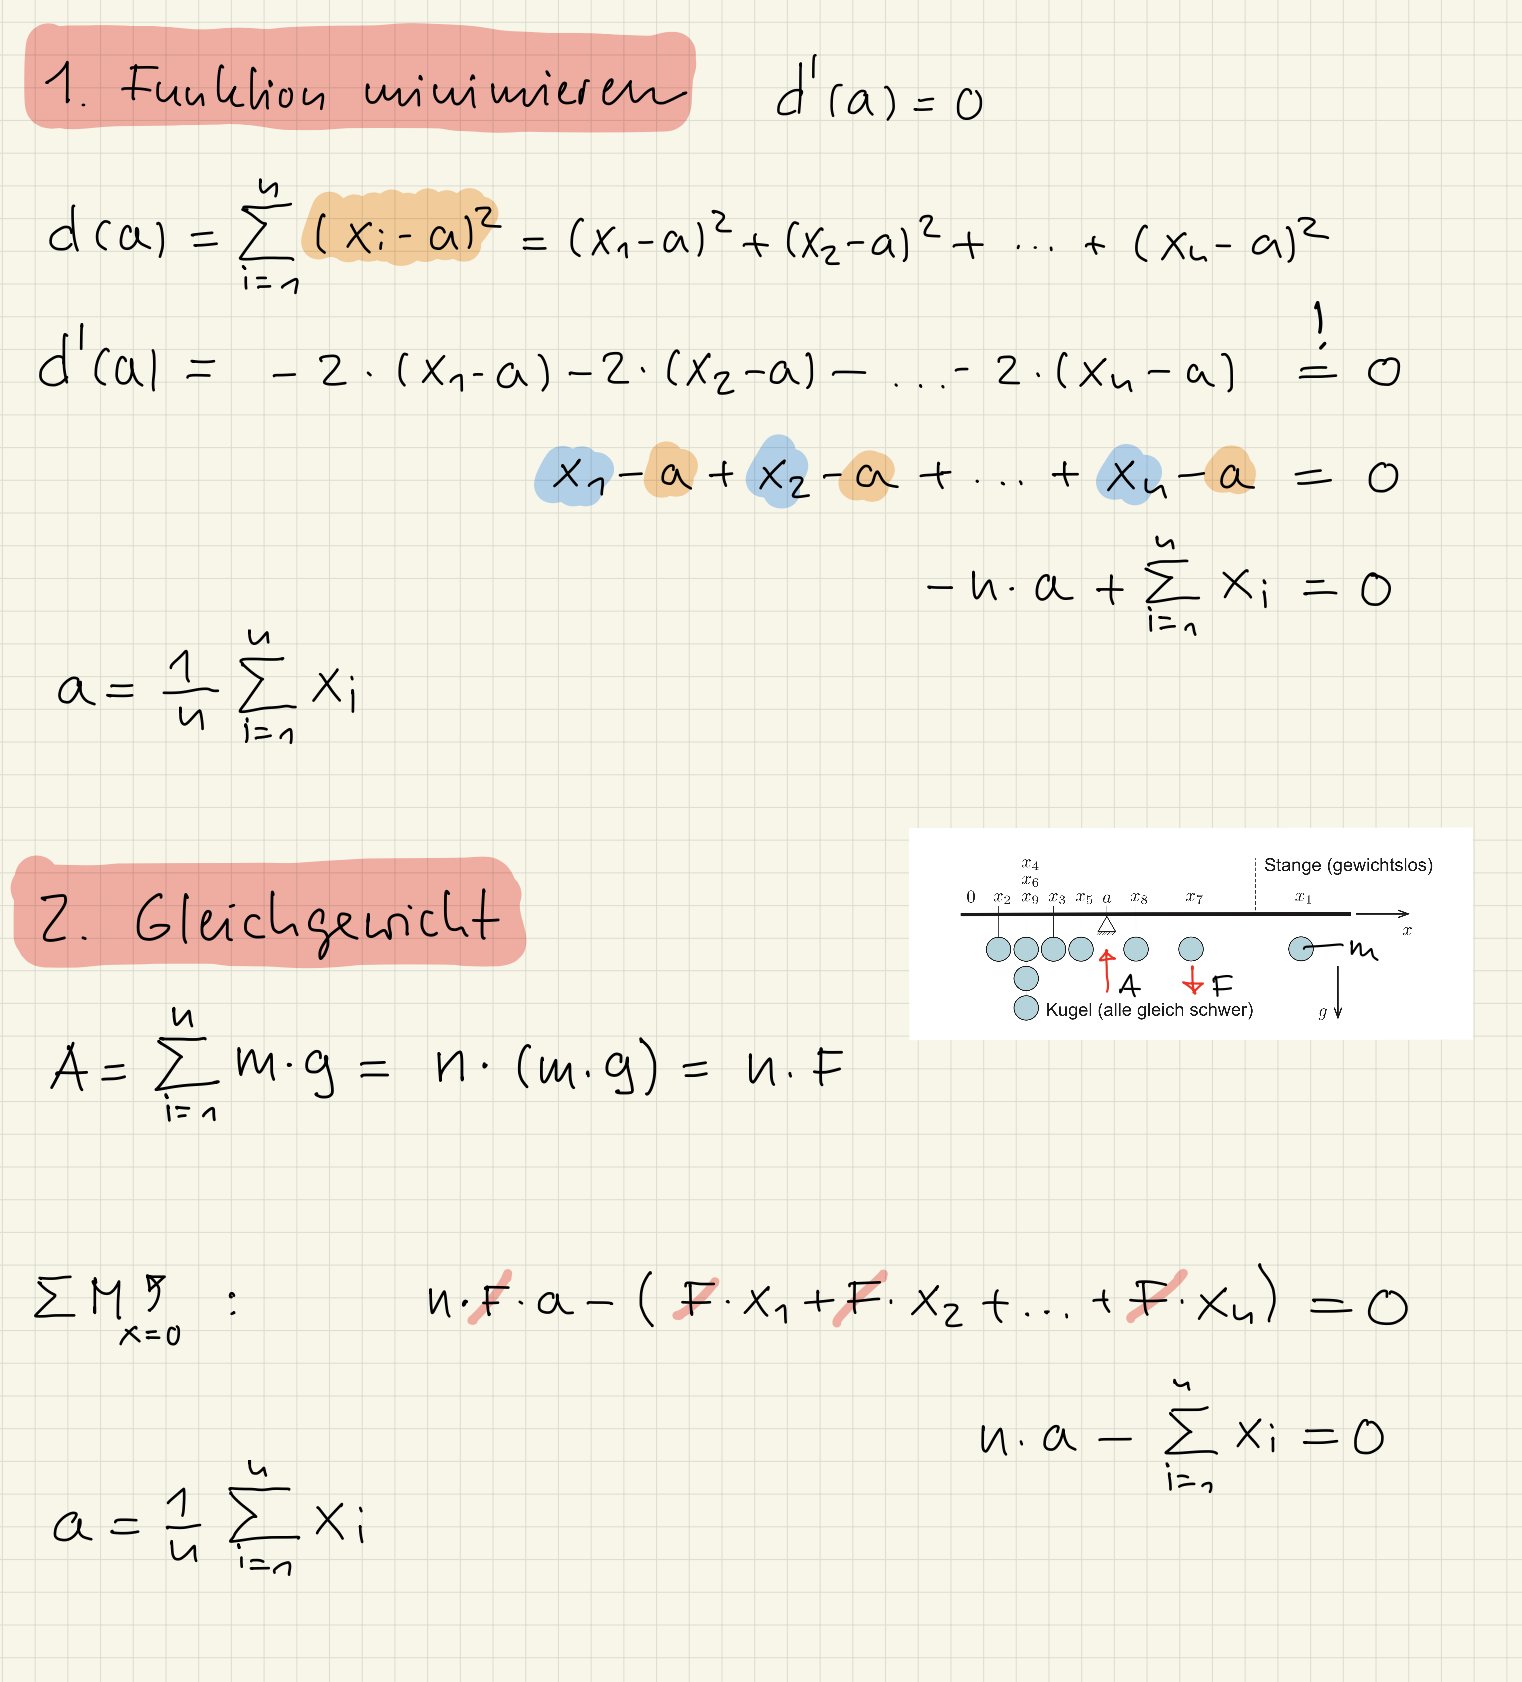 1. Funktion minimieren d'(a) = 0
d(a) = ∑_{i=1}^{n} (x_i - a)² = (x₁-a)² + (x₂-a)² + ... + (x_n - a)²
d'(a) = - 2 · (x₁-a) - 2 · (x₂-a) - ... - 2 · (x_n - a) =! 0
x₁ - a + x₂ - a + ... + x_n - a = 0
- n · a + ∑_{i=1}^{n} x_i = 0
a = 1/n ∑_{i=1}^{n} x_i
2. Gleichgewicht
x₄
x₆
Stange (gewichtslos)
0 x₂ x₉ x₃ x₅ a x₈ x₇ x₁
x
m
A F
Kugel (alle gleich schwer) g
A = ∑_{i=1}^{n} m · g = n · (m · g) = n · F
∑ M↶_{x=0} : n · F · a - ( F · x₁ + F · x₂ + ... + F · x_n ) = 0
n · a - ∑_{i=1}^{n} x_i = 0
a = 1/n ∑_{i=1}^{n} x_i